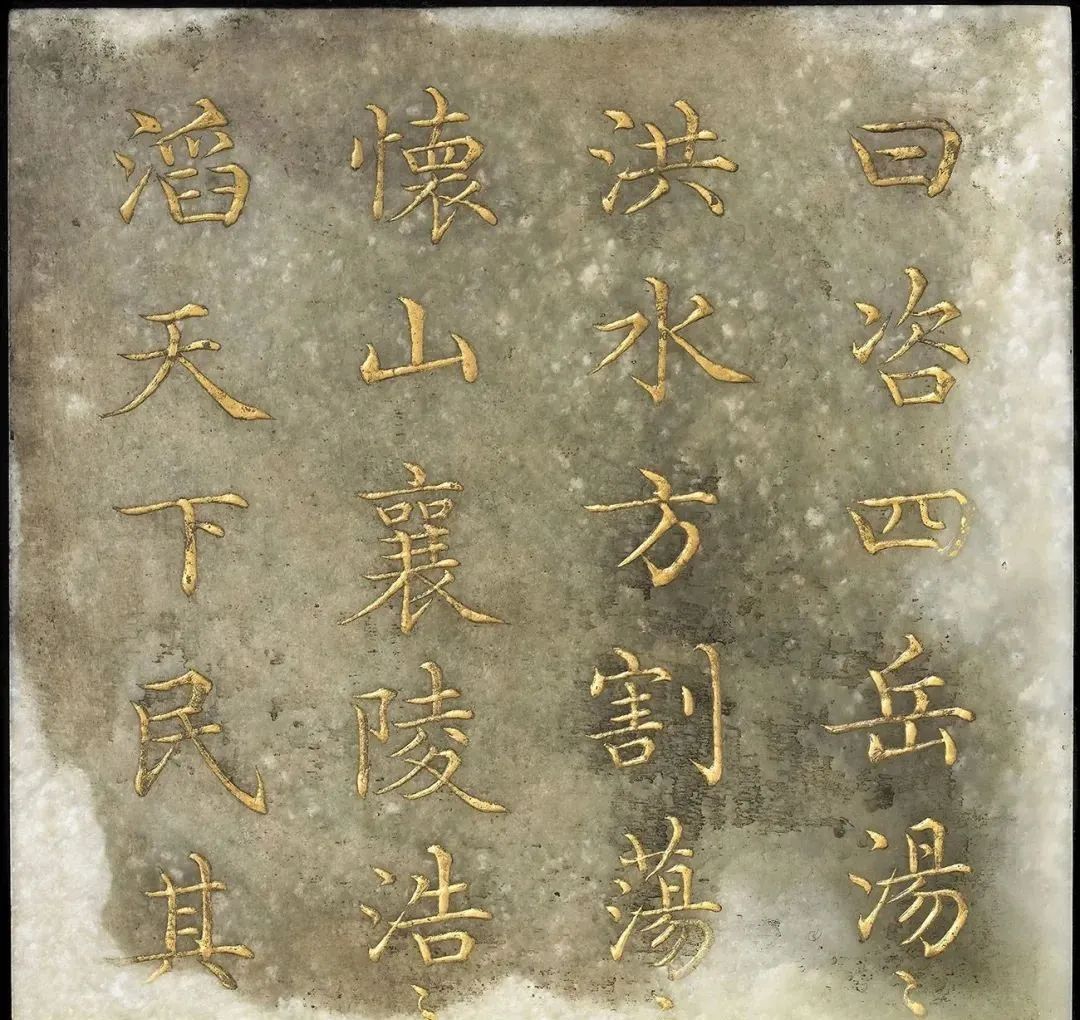 曰咨四岳湯〻
洪水方割蕩〻
懷山襄陵浩〻
滔天下民其